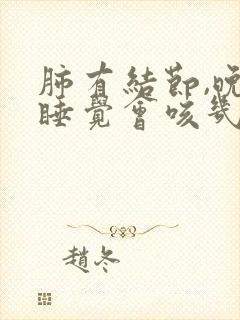 肺有結節,晚
睡覺會咳幾
趙冬